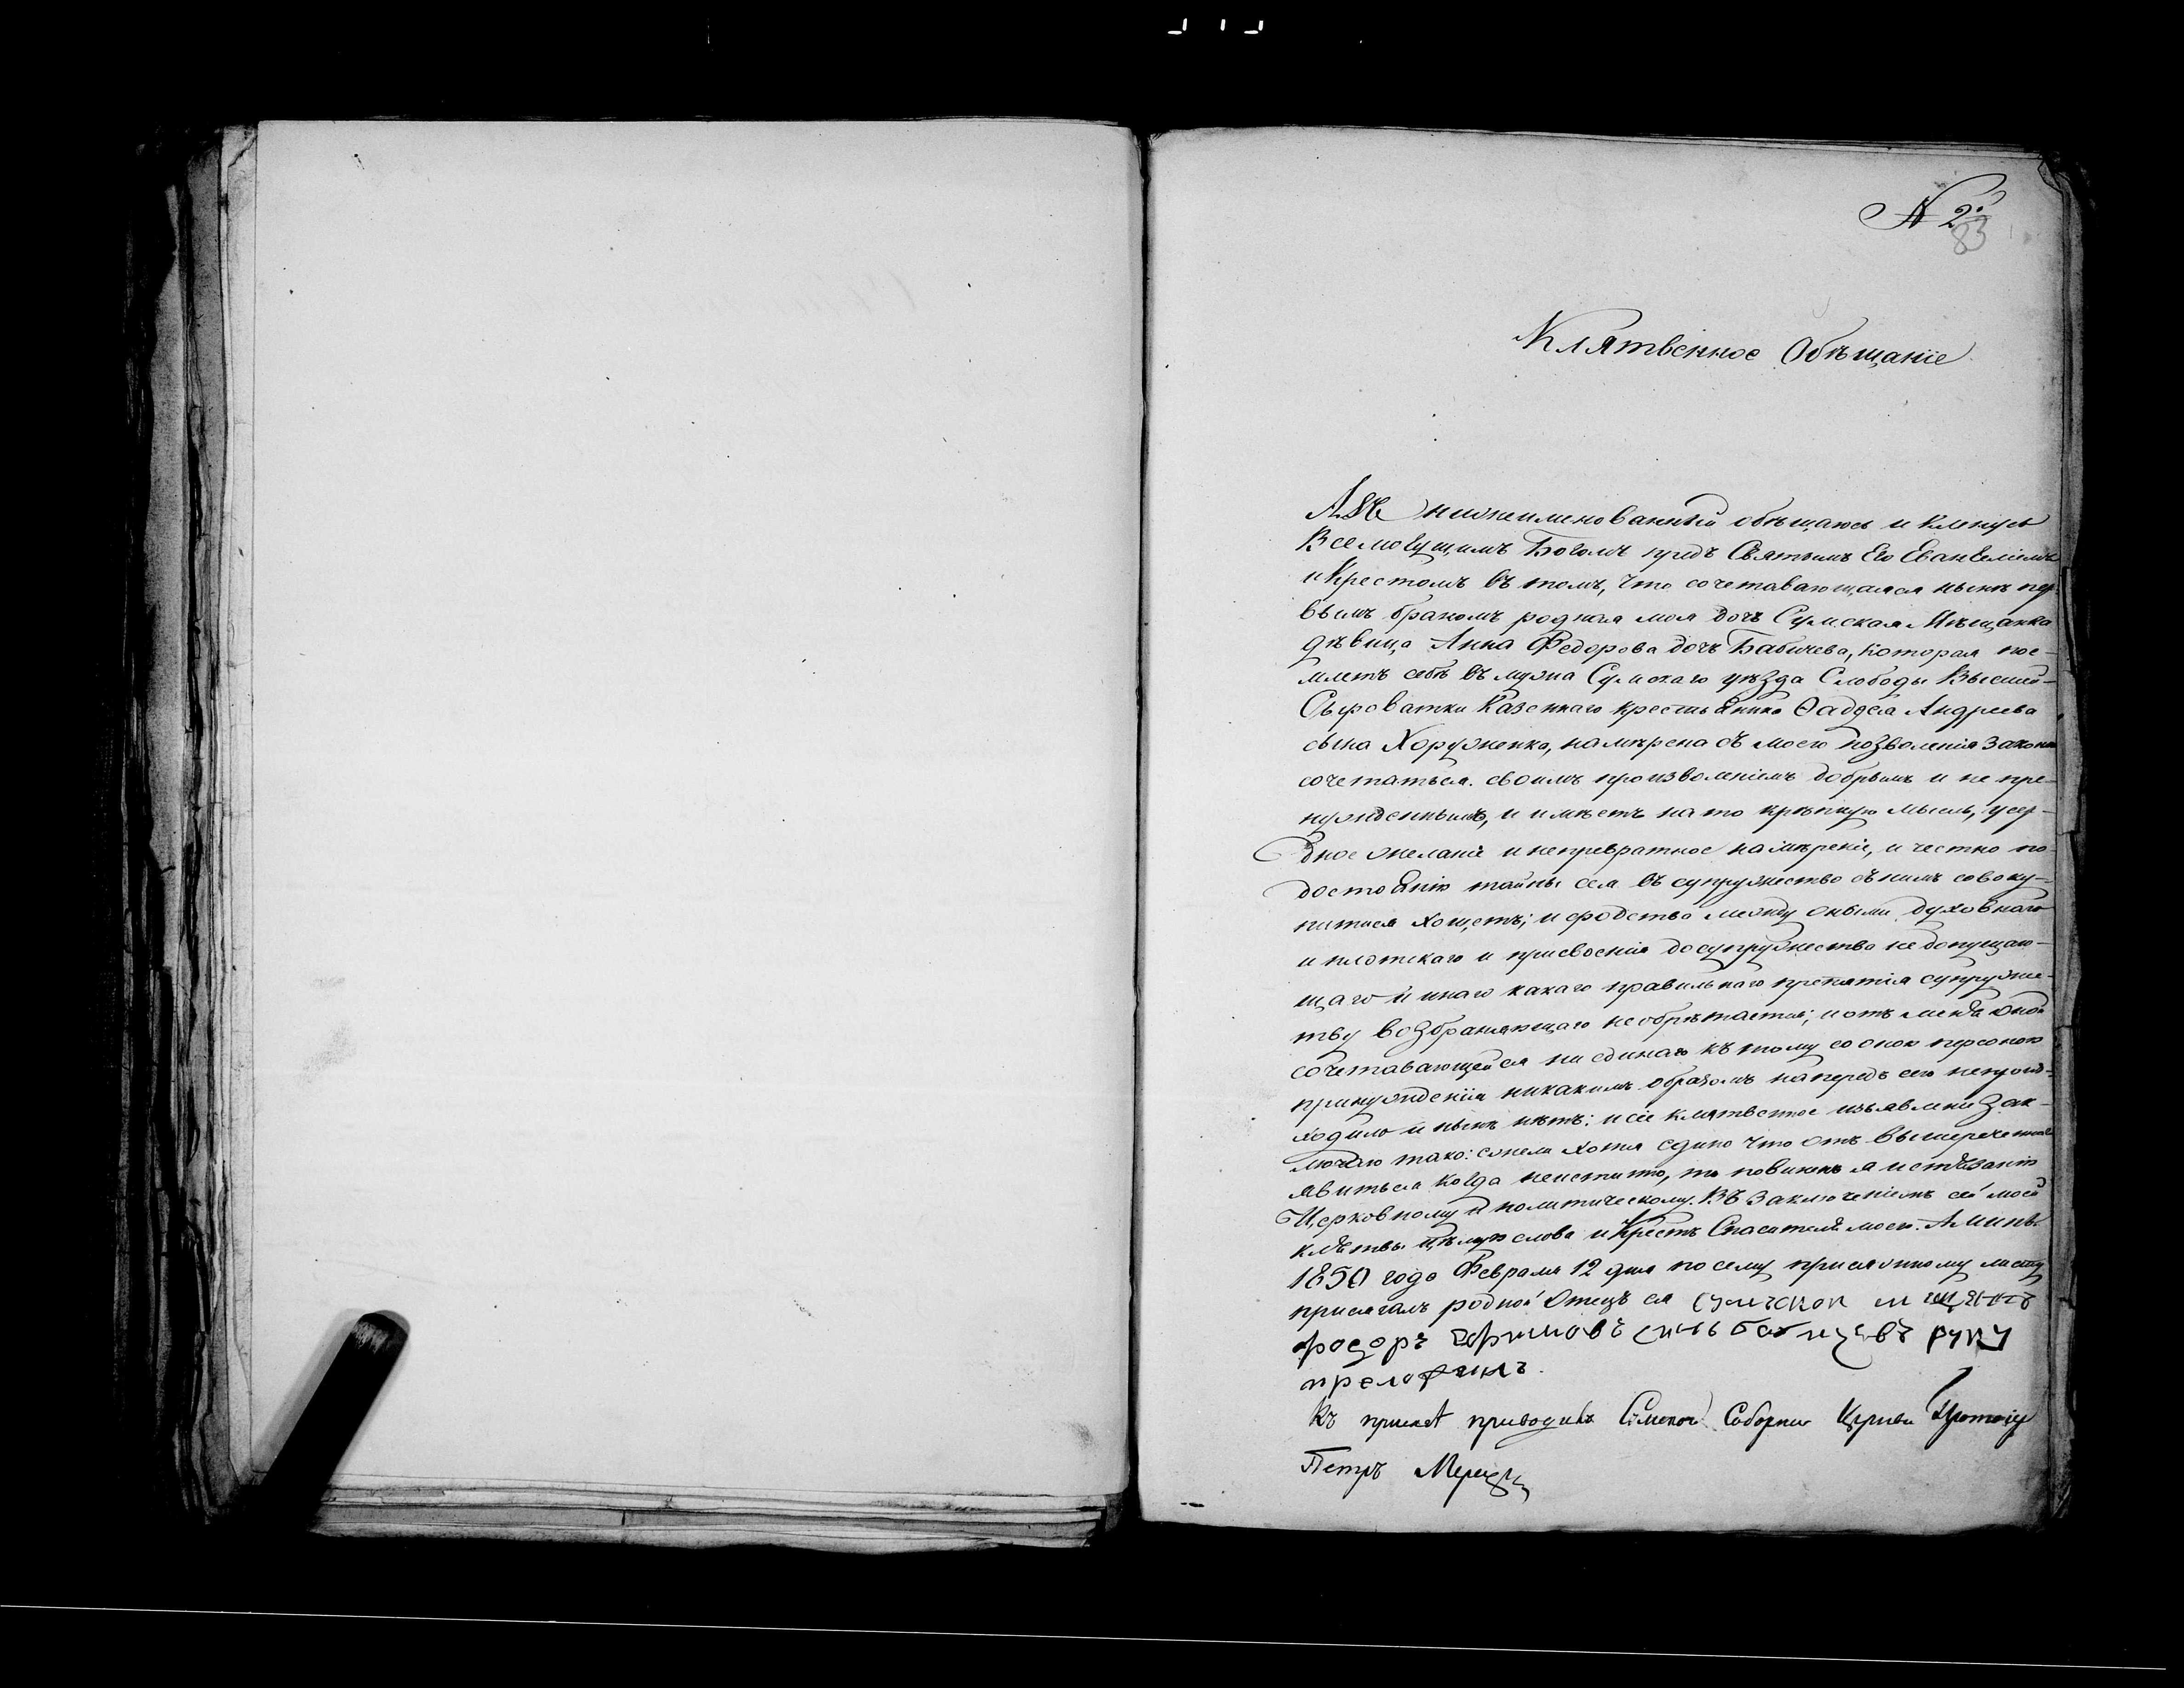 № 2й
83
Клятвенное Обѣщаніе
Азъ нижеименованный обѣщаюсь и кленусь
Всемогущимъ Богомъ предъ Святымъ Его Евангеліемъ
и Крестомъ въ томъ, что сочетавающаяся нынѣ пер-
вымъ бракомъ родная моя дочь Сумская Мѣщанка
дѣвица Анна Федорова дочь Бабичева, которая пое-
млетъ себѣ въ мужа Сумскаго уѣзда Слободы Вышней-
Сыроватки Казеннаго крестьянина Ѳаддея Андреева
сына Хоруженка, намѣрена съ моего позволенія законно
сочетаться своимъ произволеніемъ добрымъ и не при-
нужденнымъ, и имѣетъ на то крѣпкую мысль, усер-
дное желаніе и непревратное намѣреніе, и честно по
достоянію тайны сея въ супружество съ нимъ совоку-
питися хощетъ; и сродства между оными духовнаго
и плотскаго и присвоенія до супружества не допущаю-
щаго и инаго какаго правильнаго препятія супруже-
тву возбраняющаго не обрѣтается; и отъ меня оной
сочетавающейся ни единаго къ тому со оною персоною
принужденія никакимъ образомъ напередъ сего непроис-
ходило и нынѣ нѣтъ: и сіе клятвенное изъявленіе зак-
лючаю тако: ежели хотя едино что отъ вышереченныхъ
явиться когда неистинно, то повиненъ я истязанію
Церковному и политическому. Въ заключеніемъ сей моей
клятвы цѣлую слова и Крестъ Спасителя моего. Аминь.
1850 года Февраля 12 дня по сему присяжному листу
присягалъ родной Отецъ ея сумскои мещанъ
федоръ сынь бабичевъ руку
преложилъ.
Къ присягѣ приводилъ Сумской Соборной Церкви Протоіер
Петръ